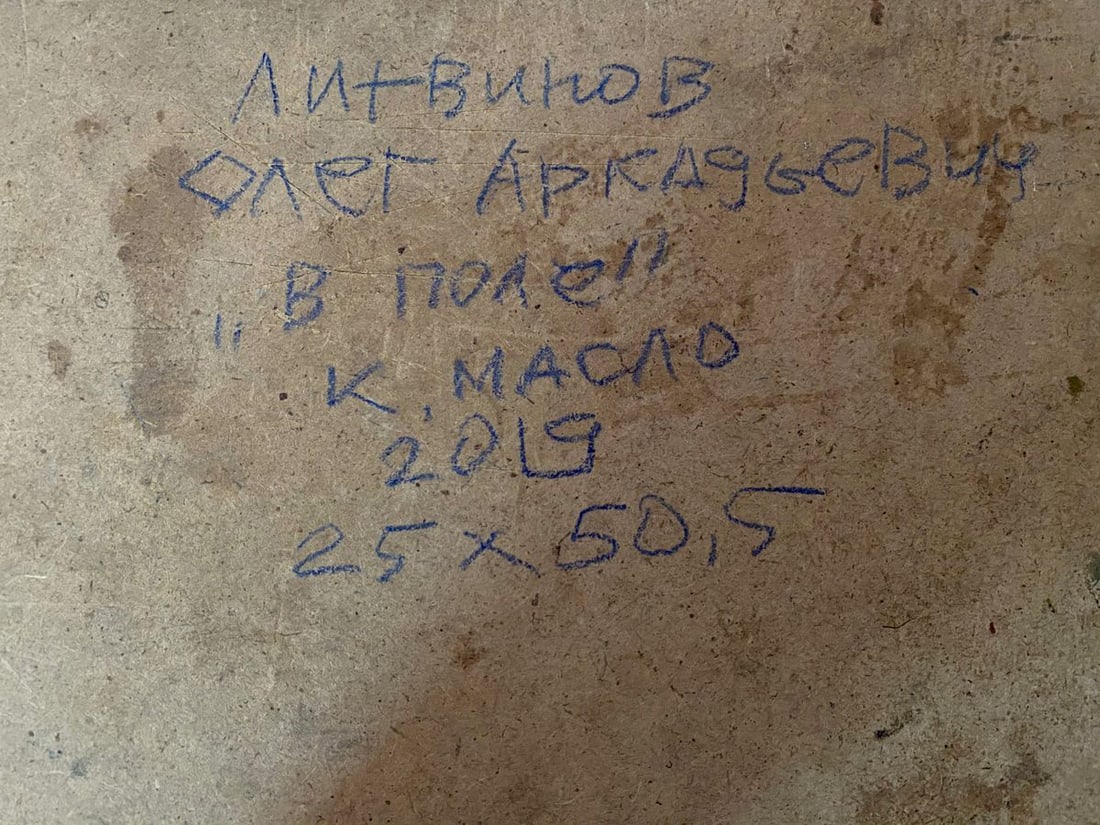 Литвинов
Олег Аркадьевич
„В поле"
К. МАСЛО
2019
25 x 50,5